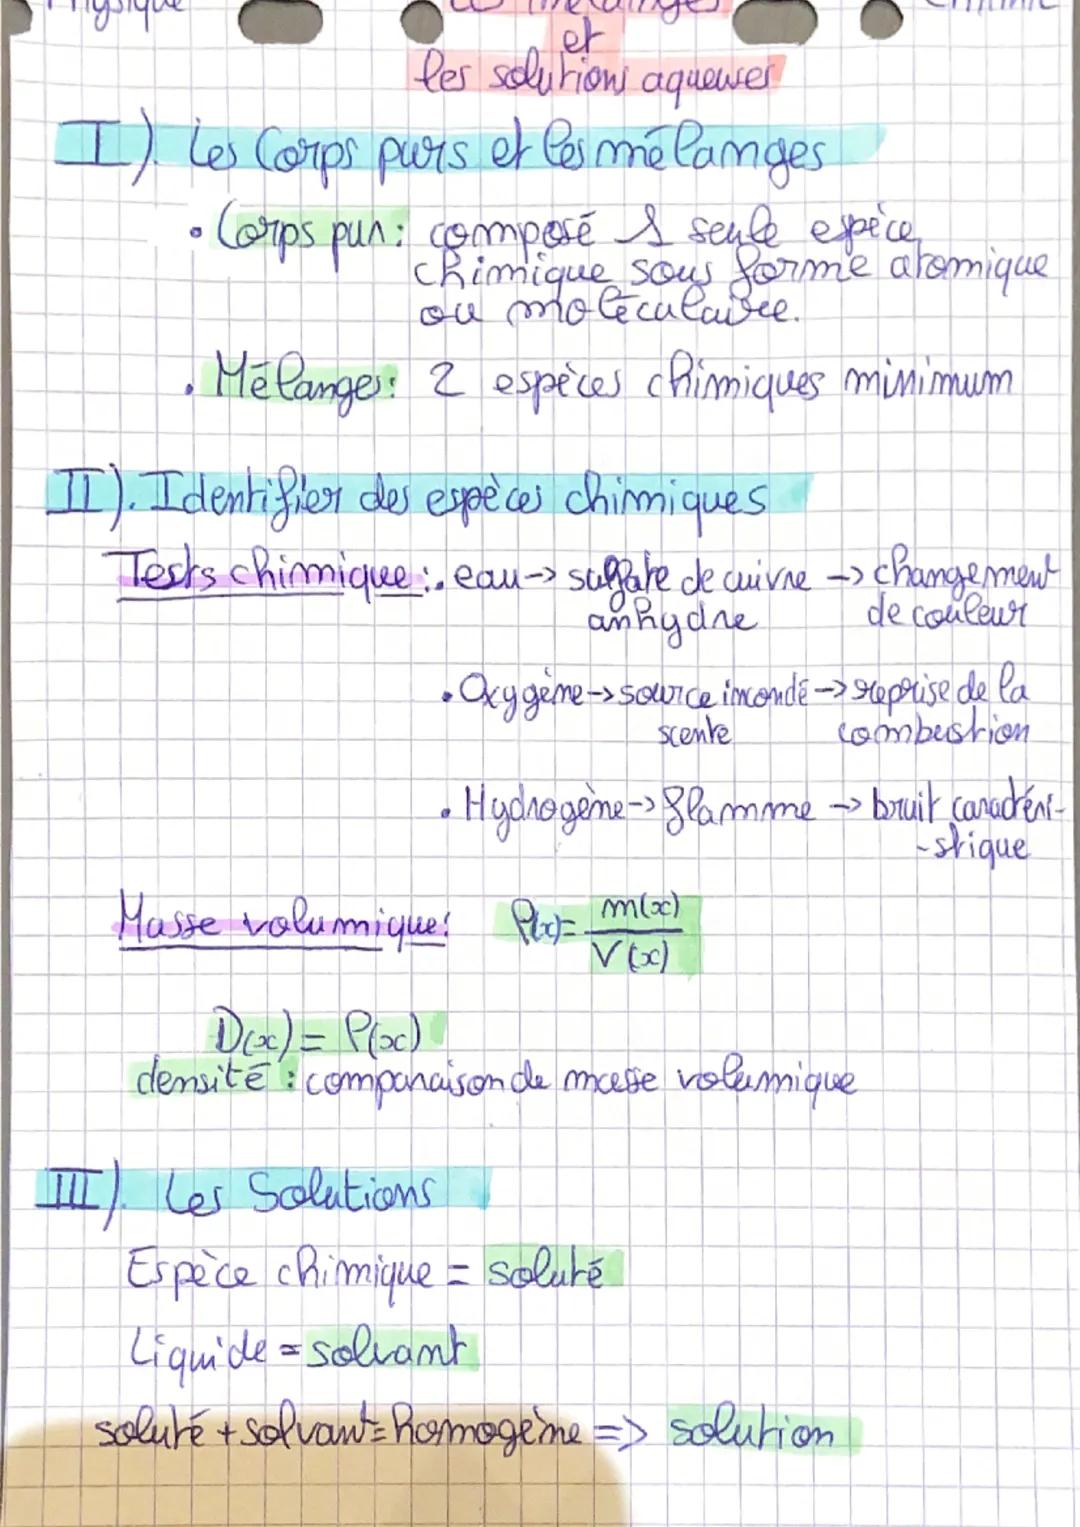 Physique
et
les solutions aqueuses
I). Les Corps purs et les mélanges
• Corps pur: composé 1 seule espèce
chimique sous forme atomique
ou moléculaire.
• Mélanges: 2 espèces chimiques minimum
II). Identifier des espèces chimiques
Tests chimique: • eau -> sulfate de cuivre -> changement
anhydre de couleur
• Oxygène -> source incandé -> reprise de la
scente combustion
• Hydrogène -> flamme -> bruit caractéri-
-stique
Masse volumique: ρ(x) = m(x)
V(x)
D(x) = ρ(x)
densité : comparaison de masse volumique
III). Les Solutions
Espèce chimique = soluté
Liquide = solvant
soluté + solvant = homogène => solution